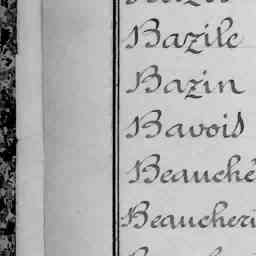 Bazile
Bazin
Bavois
Beauché
Beaucheri